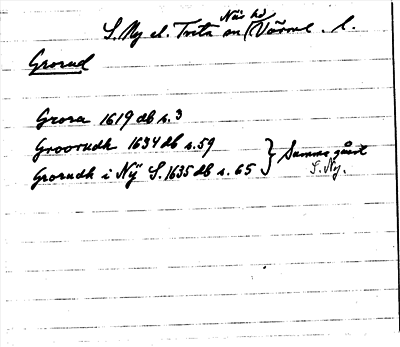 S. Ny el. Trita sn (Värml. l.
När hd
Grorud
Grora 1619 db s. 3
Groorudh 1634 db s. 59
Grorudh i Nÿ S. 1635 db s. 65 } Samma gård
S. Ny.